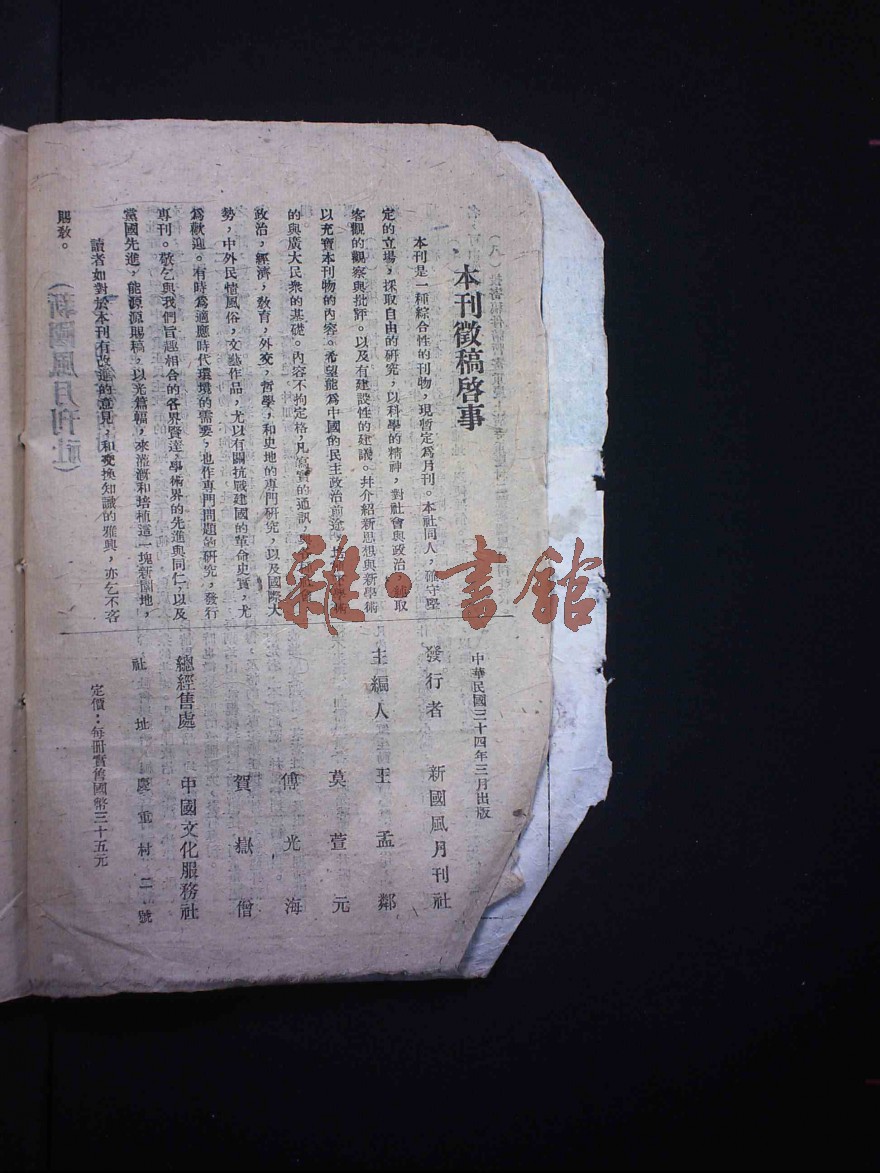 本刊徵稿啓事
本刊是一種綜合性的刊物，現暫定為月刊。本社同人，確守堅
定的立場，採取自由的研究，以科學的精神，對社會與政治，
客觀的觀察與批評。以及有建設性的建議。幷介紹新思想與新學術
以充實本刊物的內容。希望能為中國的民主政治前途，
的與廣大民衆的基礎。內容不拘定格，凡寫實的通訊，
政治，經濟，教育，外交，哲學，和史地的專門研究，以及國際大
勢，中外民情風俗，文藝作品，尤以有關抗戰建國的革命史實，尤
為歡迎。有時為適應時代環境的需要，也作專門問題的研究，發行
專刊。敬乞與我們旨趣相合的各界賢達，學術界的先進與同仁，以及
黨國先進，能源源賜稿，以光篇幅，來滋漸和培植這一塊新園地，
讀者如對於本刊有改進的意見，和交換知識的雅興，亦乞不客
賜敎。
（新國風月刊社）
中華民國三十四年三月出版
發行者 新國風月刊社
主編人 王孟鄰
莫萱元
傅光海
賀嶽僧
總經售處 中國文化服務社
社址 慶重村二號
定價：每册實售國幣三十五元
雜·書館